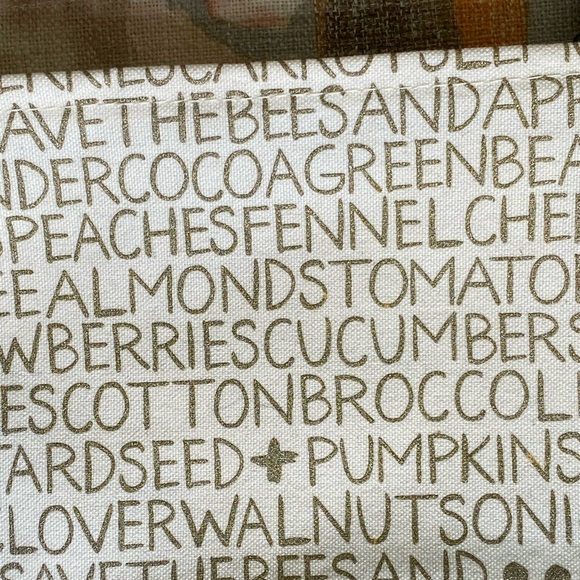 ERRIESCARROTSCELE
AVETHEBEESANDAPP
NDERCOCOAGREENBEA
SPEACHESFENNELCHE
EEALMONDSTOMATO
WBERRIESCUCUMBERS
ESCOTTONBROCCOLI
TARDSEED+PUMPKINS
CLOVERWALNUTSONI
SAVETHEBEESAND